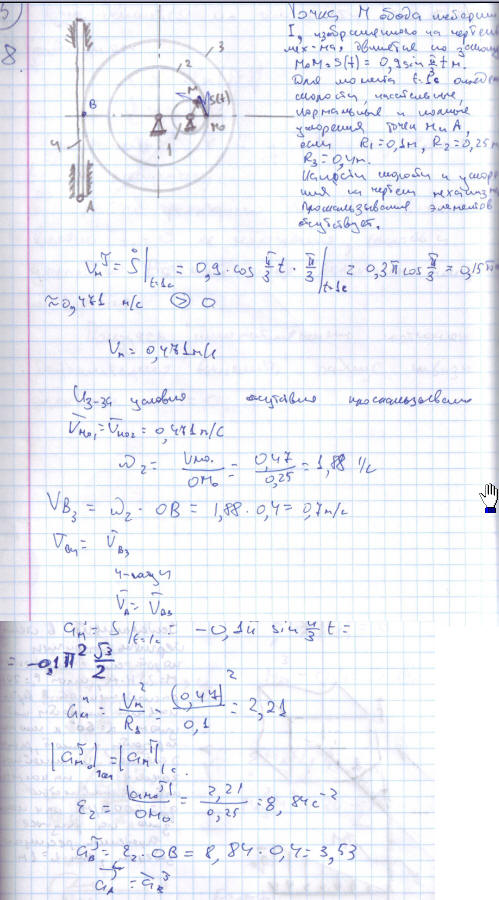 8.
1
2
3
4
B
A
M
M₀
S(t)
Точка M обода шестерни
I, изображенного на чертеже
мех-ма, движется по закону
M₀M = S(t) = 0,9 sin π/3 t м.
Для момента t=1c
скорости, касательные,
нормальные и полные
ускорения точки M и A,
если R₁=0,1м, R₂=0,25м
R₃=0,4м.
скорости и ускоре-
ния на чертеже механизма
Проскальзывание элементов
отсутствует.
Vмᵀ = Ṡ|t=1c = 0,9 · cos π/3 t · π/3 |t=1c = 0,3π cos π/3 = 0,15π
≈ 0,471 м/с > 0
Vм = 0,471 м/с
Из-за условия отсутствия проскальзывания
V̄м₀₁ = V̄м₀₂ = 0,471 м/с
ω₂ = Vм₀ / OM₀ = 0,47 / 0,25 = 1,88 1/с
VB₃ = ω₂ · OB = 1,88 · 0,4 = 0,7 м/с
V̄B₄ = V̄B₃
V̄A = V̄B₃
S̈ /t=1c = -0,1π² sin π/3 t =
= -0,1π² √3/2
aмⁿ = Vм² / R₁ = (0,47)² / 0,1 = 2,21
ε₂ = |aм₀ᵀ| / OM₀ = 2,21 / 0,25 = 8,84 c⁻²
aBᵀ = ε₂ · OB = 8,84 · 0,4 = 3,53
āAᵀ = āBᵀ